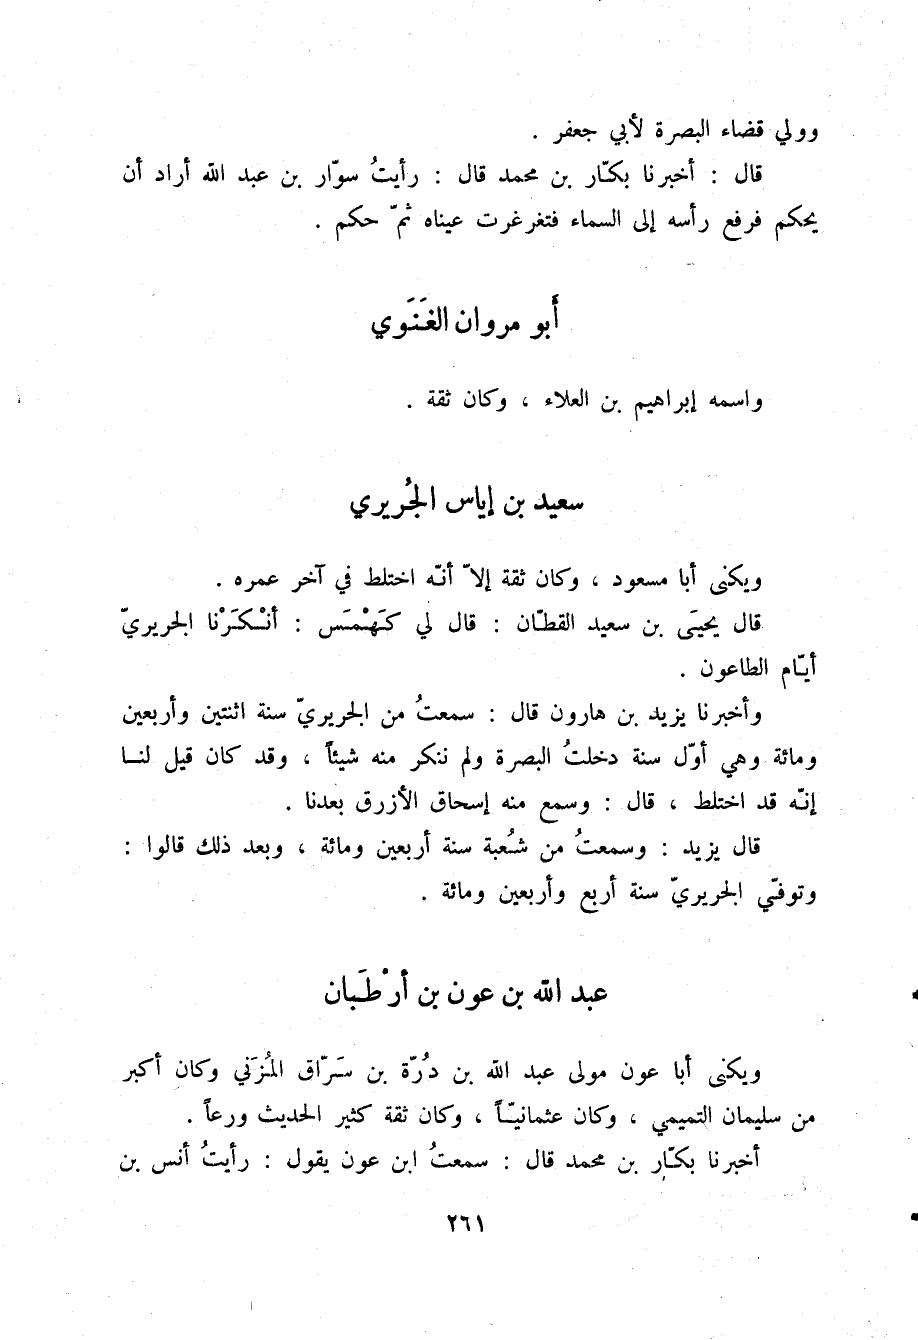 وولي قضاء البصرة لأبي جعفر .
قال : أخبرنا بكّار بن محمد قال : رأيتُ سوّار بن عبد الله أراد أن
يحكم فرفع رأسه إلى السماء فتغرغرت عيناه ثمّ حكم .
أَبو مروان الغَنَوي
واسمه إبراهيم بن العلاء ، وكان ثقة .
سعيد بن إياس الجُريري
ويكنى أبا مسعود ، وكان ثقة إلاّ أنّه اختلط في آخر عمره .
قال يحيَى بن سعيد القطّان : قال لي كَهْمَس : أنْكَرْنا الجريريّ
أيّام الطاعون .
وأخبرنا يزيد بن هارون قال : سمعتُ من الجريريّ سنة اثنتين وأربعين
ومائة وهي أوّل سنة دخلتُ البصرة ولم ننكر منه شيئاً ، وقد كان قيل لنا
إنّه قد اختلط ، قال : وسمع منه إسحاق الأزرق بعدنا .
قال يزيد : وسمعتُ من شُعبة سنة أربعين ومائة ، وبعد ذلك قالوا :
وتوفّي الجريريّ سنة أربع وأربعين ومائة .
عبد الله بن عون بن أرْطَبان
ويكنى أبا عون مولى عبد الله بن دُرّة بن سَرّاق المُزَني وكان أكبر
من سليمان التميمي ، وكان عثمانيّاً ، وكان ثقة كثير الحديث ورعاً .
أخبرنا بكّار بن محمد قال : سمعتُ ابن عون يقول : رأيتُ أنس بن
٢٦١